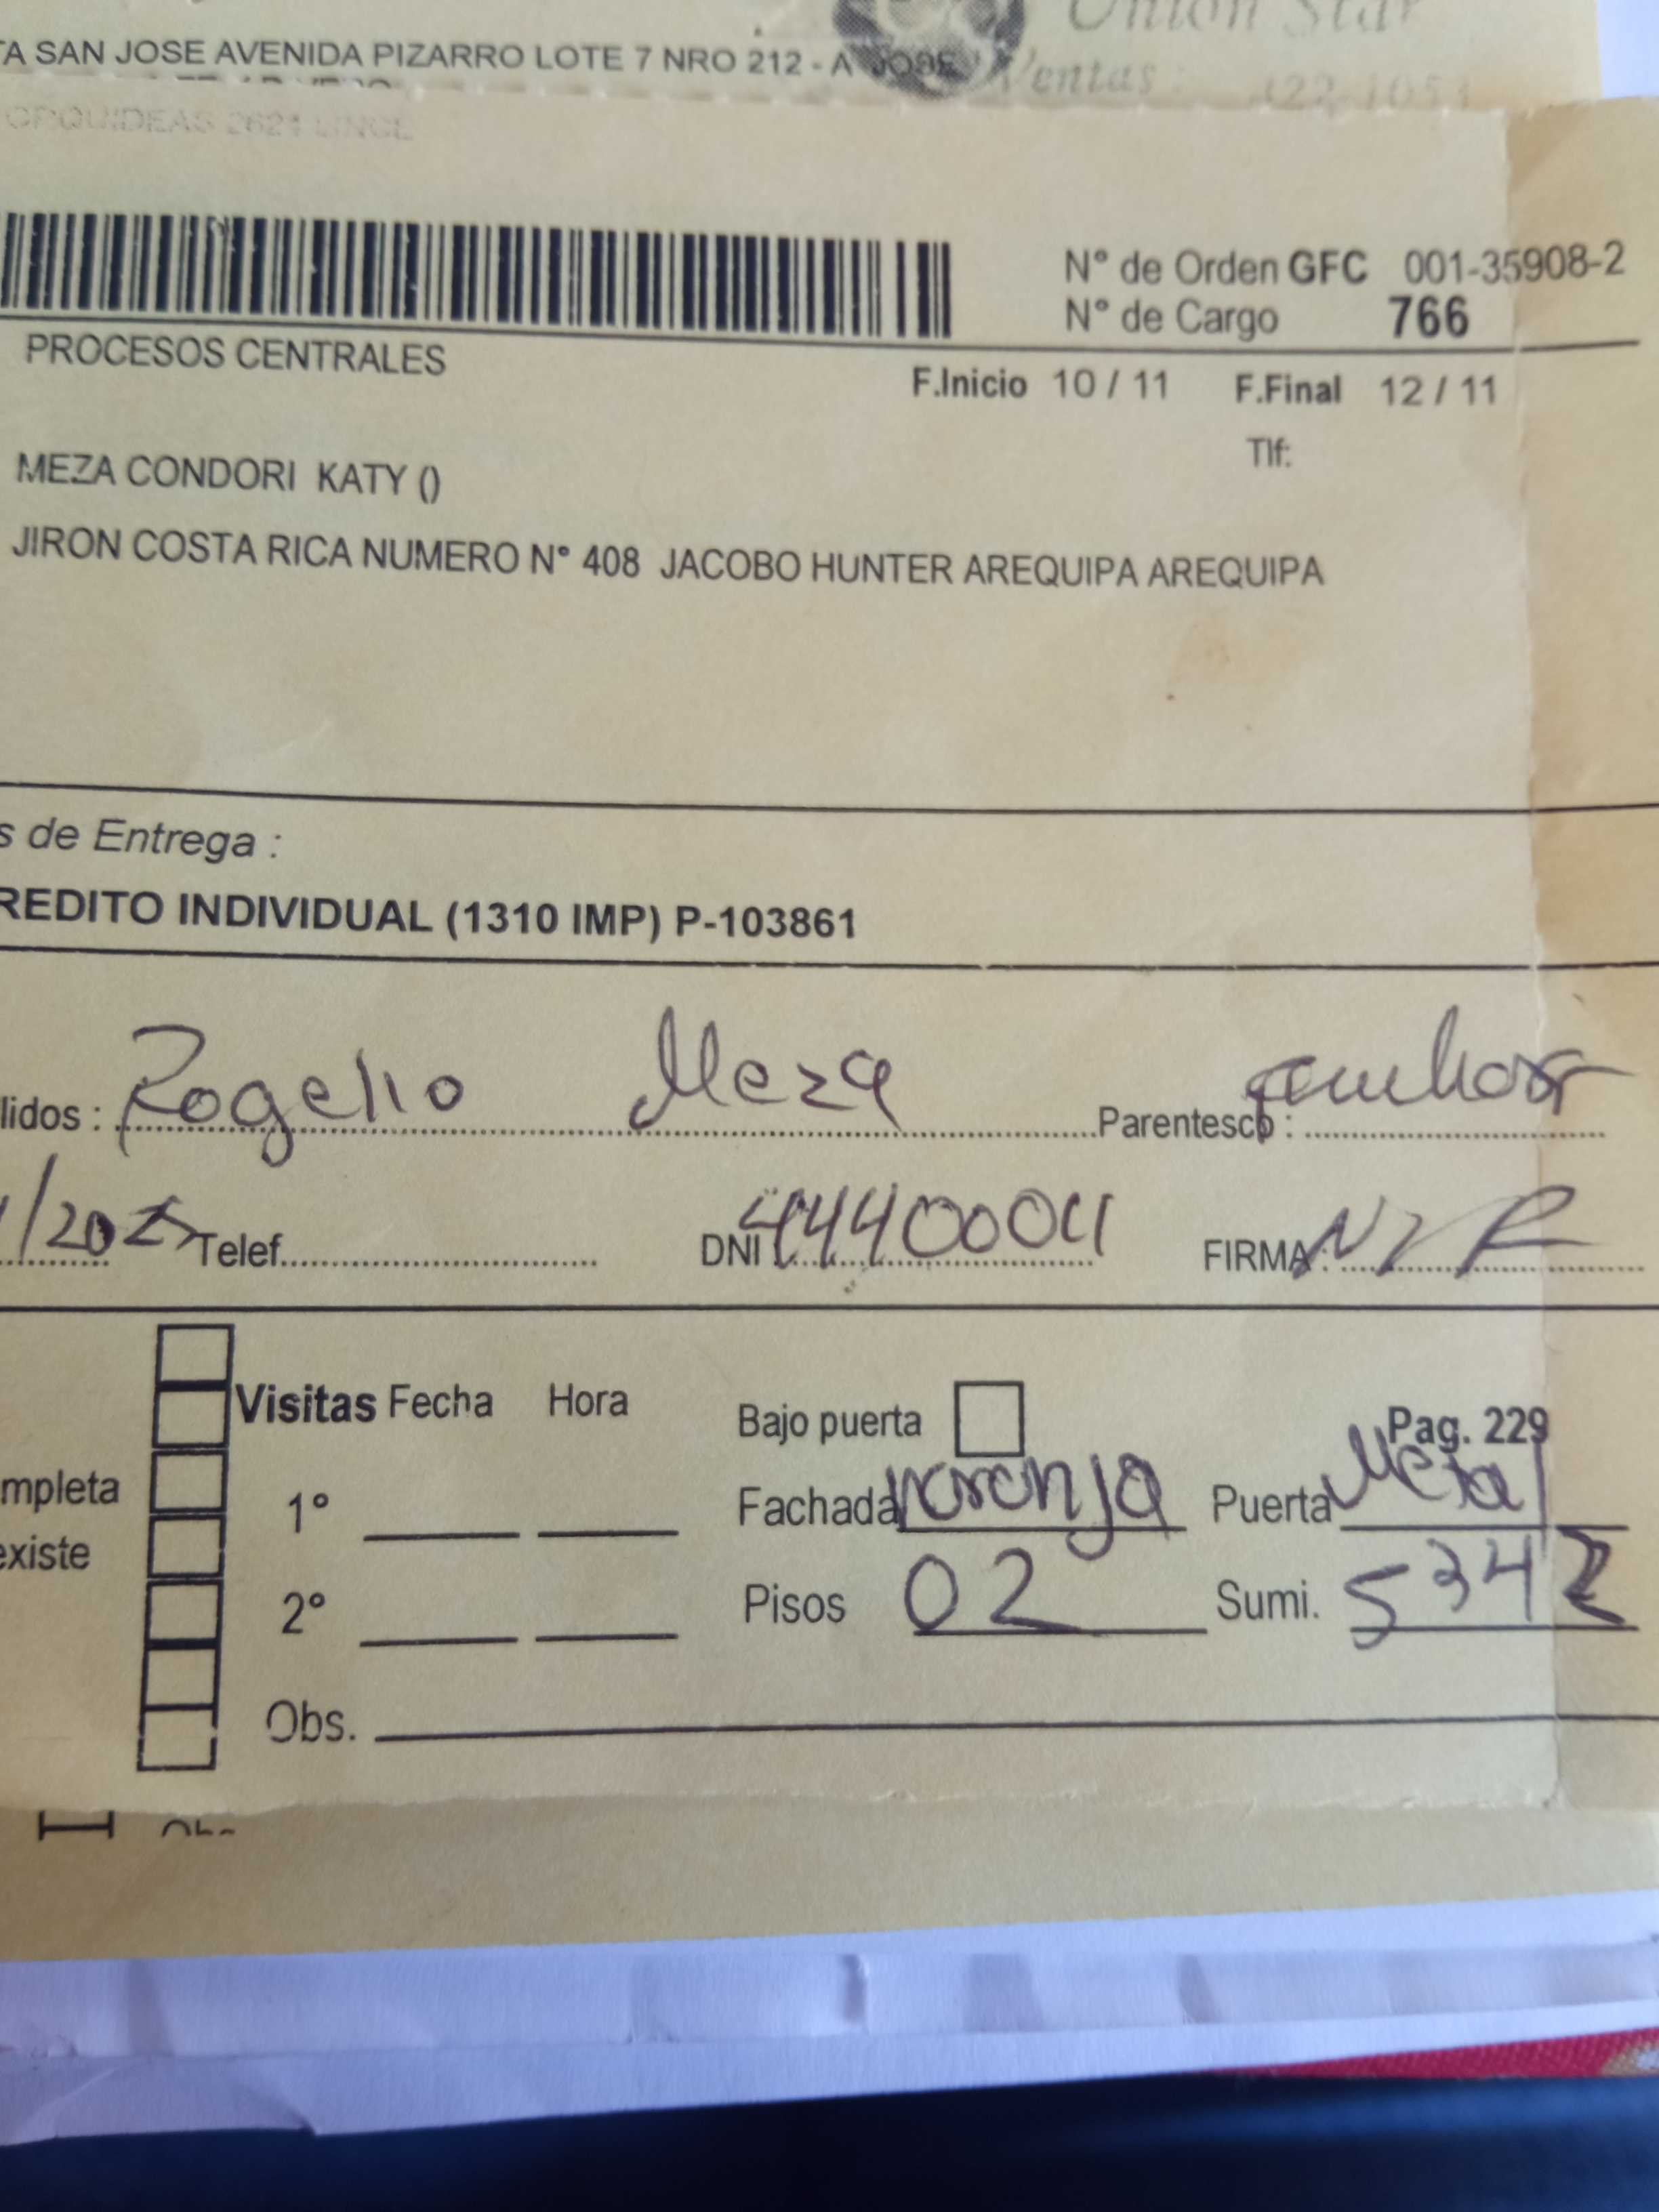 TA SAN JOSE AVENIDA PIZARRO LOTE 7 NRO 212 - A JOSE
Union Star
Ventas:
ORQUIDEAS 2621 LINCE
N° de Orden GFC 001-35908-2
N° de Cargo 766
PROCESOS CENTRALES
F.Inicio 10 / 11 F.Final 12 / 11
Tlf:
MEZA CONDORI KATY ()
JIRON COSTA RICA NUMERO N° 408 JACOBO HUNTER AREQUIPA AREQUIPA
s de Entrega :
REDITO INDIVIDUAL (1310 IMP) P-103861
lidos : Rogelio Meza Parentesco :
Telef. DNI FIRMA:
Visitas Fecha Hora Bajo puerta Pag. 229
mpleta 1° Fachada naranja Puerta Metal
existe
2° Pisos 02 Sumi. 5342
Obs.